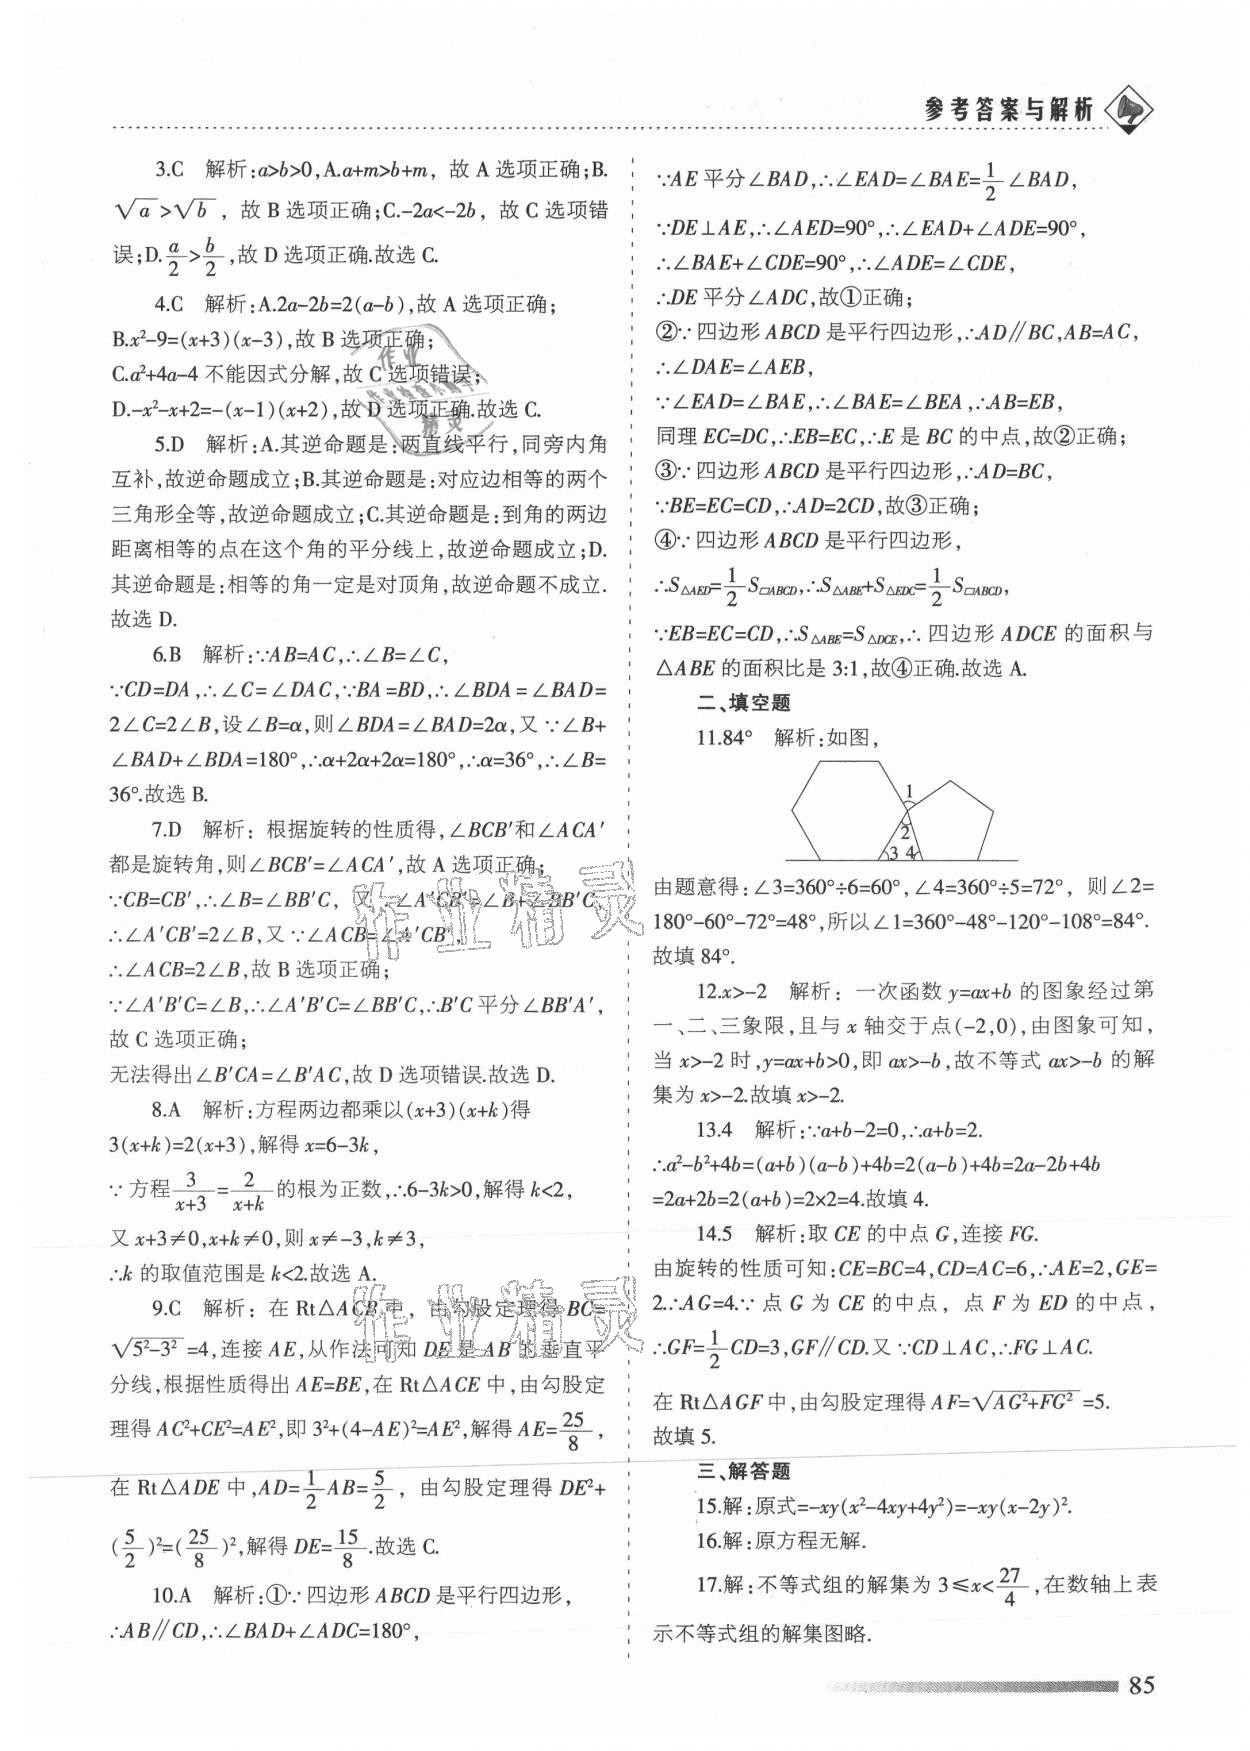 参考答案与解析
3.C 解析:a>b>0,A.a+m>b+m，故 A 选项正确;B.
√a>√b，故 B 选项正确;C.-2a<-2b，故 C 选项错
误;D.a/2>b/2,故 D 选项正确.故选 C.
4.C 解析:A.2a-2b=2(a-b),故 A 选项正确;
B.x²-9=(x+3)(x-3),故 B 选项正确;
C.a²+4a-4 不能因式分解,故 C 选项错误;
D.-x²-x+2=-(x-1)(x+2),故 D 选项正确.故选 C.
5.D 解析:A.其逆命题是:两直线平行,同旁内角
互补,故逆命题成立;B.其逆命题是:对应边相等的两个
三角形全等,故逆命题成立;C.其逆命题是:到角的两边
距离相等的点在这个角的平分线上,故逆命题成立;D.
其逆命题是:相等的角一定是对顶角,故逆命题不成立.
故选 D.
6.B 解析:∵AB=AC,∴∠B=∠C,
∵CD=DA,∴∠C=∠DAC,∵BA=BD,∴∠BDA=∠BAD=
2∠C=2∠B,设∠B=α,则∠BDA=∠BAD=2α,又∵∠B+
∠BAD+∠BDA=180°,∴α+2α+2α=180°,∴α=36°,∴∠B=
36°.故选 B.
7.D 解析:根据旋转的性质得,∠BCB′和∠ACA′
都是旋转角,则∠BCB′=∠ACA′,故 A 选项正确;
∵CB=CB′,∴∠B=∠BB′C，又∵∠A′CB′=∠B+∠BB′C,
∴∠A′CB′=2∠B,又∵∠ACB=∠A′CB′,
∴∠ACB=2∠B,故 B 选项正确;
∵∠A′B′C=∠B,∴∠A′B′C=∠BB′C,∴B′C 平分∠BB′A′,
故 C 选项正确;
无法得出∠B′CA=∠B′AC,故 D 选项错误.故选 D.
8.A 解析:方程两边都乘以(x+3)(x+k)得
3(x+k)=2(x+3),解得 x=6-3k,
∵方程3/(x+3)=2/(x+k)的根为正数,∴6-3k>0,解得 k<2,
又 x+3≠0,x+k≠0,则 x≠-3,k≠3,
∴k 的取值范围是 k<2.故选 A.
9.C 解析:在 Rt△ACB 中，由勾股定理得 BC=
√5²-3²=4,连接 AE,从作法可知 DE 是 AB 的垂直平
分线,根据性质得出 AE=BE,在 Rt△ACE 中,由勾股定
理得 AC²+CE²=AE²,即 3²+(4-AE)²=AE²,解得 AE=25/8,
在 Rt△ADE 中,AD=1/2AB=5/2，由勾股定理得 DE²+
(5/2)²=(25/8)²,解得 DE=15/8.故选 C.
10.A 解析:①∵四边形 ABCD 是平行四边形,
∴AB∥CD,∴∠BAD+∠ADC=180°,
∵AE 平分∠BAD,∴∠EAD=∠BAE=1/2∠BAD,
∵DE⊥AE,∴∠AED=90°,∴∠EAD+∠ADE=90°,
∴∠BAE+∠CDE=90°,∴∠ADE=∠CDE,
∴DE 平分∠ADC,故①正确;
②∵四边形 ABCD 是平行四边形,∴AD∥BC,AB=AC,
∴∠DAE=∠AEB,
∵∠EAD=∠BAE,∴∠BAE=∠BEA,∴AB=EB,
同理 EC=DC,∴EB=EC,∴E 是 BC 的中点,故②正确;
③∵四边形 ABCD 是平行四边形,∴AD=BC,
∵BE=EC=CD,∴AD=2CD,故③正确;
④∵四边形 ABCD 是平行四边形,
∴S△AED=1/2S▱ABCD,∴S△ABE+S△EDC=1/2S▱ABCD,
∵EB=EC=CD,∴S△ABE=S△DCE,∴四边形 ADCE 的面积与
△ABE 的面积比是 3:1,故④正确.故选 A.
二、填空题
11.84° 解析:如图,
1
2
3 4
由题意得:∠3=360°÷6=60°,∠4=360°÷5=72°，则∠2=
180°-60°-72°=48°,所以∠1=360°-48°-120°-108°=84°.
故填 84°.
12.x>-2 解析:一次函数 y=ax+b 的图象经过第
一、二、三象限,且与 x 轴交于点(-2,0),由图象可知,
当 x>-2 时,y=ax+b>0,即 ax>-b,故不等式 ax>-b 的解
集为 x>-2.故填 x>-2.
13.4 解析:∵a+b-2=0,∴a+b=2.
∴a²-b²+4b=(a+b)(a-b)+4b=2(a-b)+4b=2a-2b+4b
=2a+2b=2(a+b)=2×2=4.故填 4.
14.5 解析:取 CE 的中点 G,连接 FG.
由旋转的性质可知:CE=BC=4,CD=AC=6,∴AE=2,GE=
2.∴AG=4.∵点 G 为 CE 的中点，点 F 为 ED 的中点,
∴GF=1/2CD=3,GF∥CD.又∵CD⊥AC,∴FG⊥AC.
在 Rt△AGF 中,由勾股定理得 AF=√AG²+FG²=5.
故填 5.
三、解答题
15.解:原式=-xy(x²-4xy+4y²)=-xy(x-2y)².
16.解:原方程无解.
17.解:不等式组的解集为 3≤x<27/4,在数轴上表
示不等式组的解集图略.
85
作业精灵
作业精灵